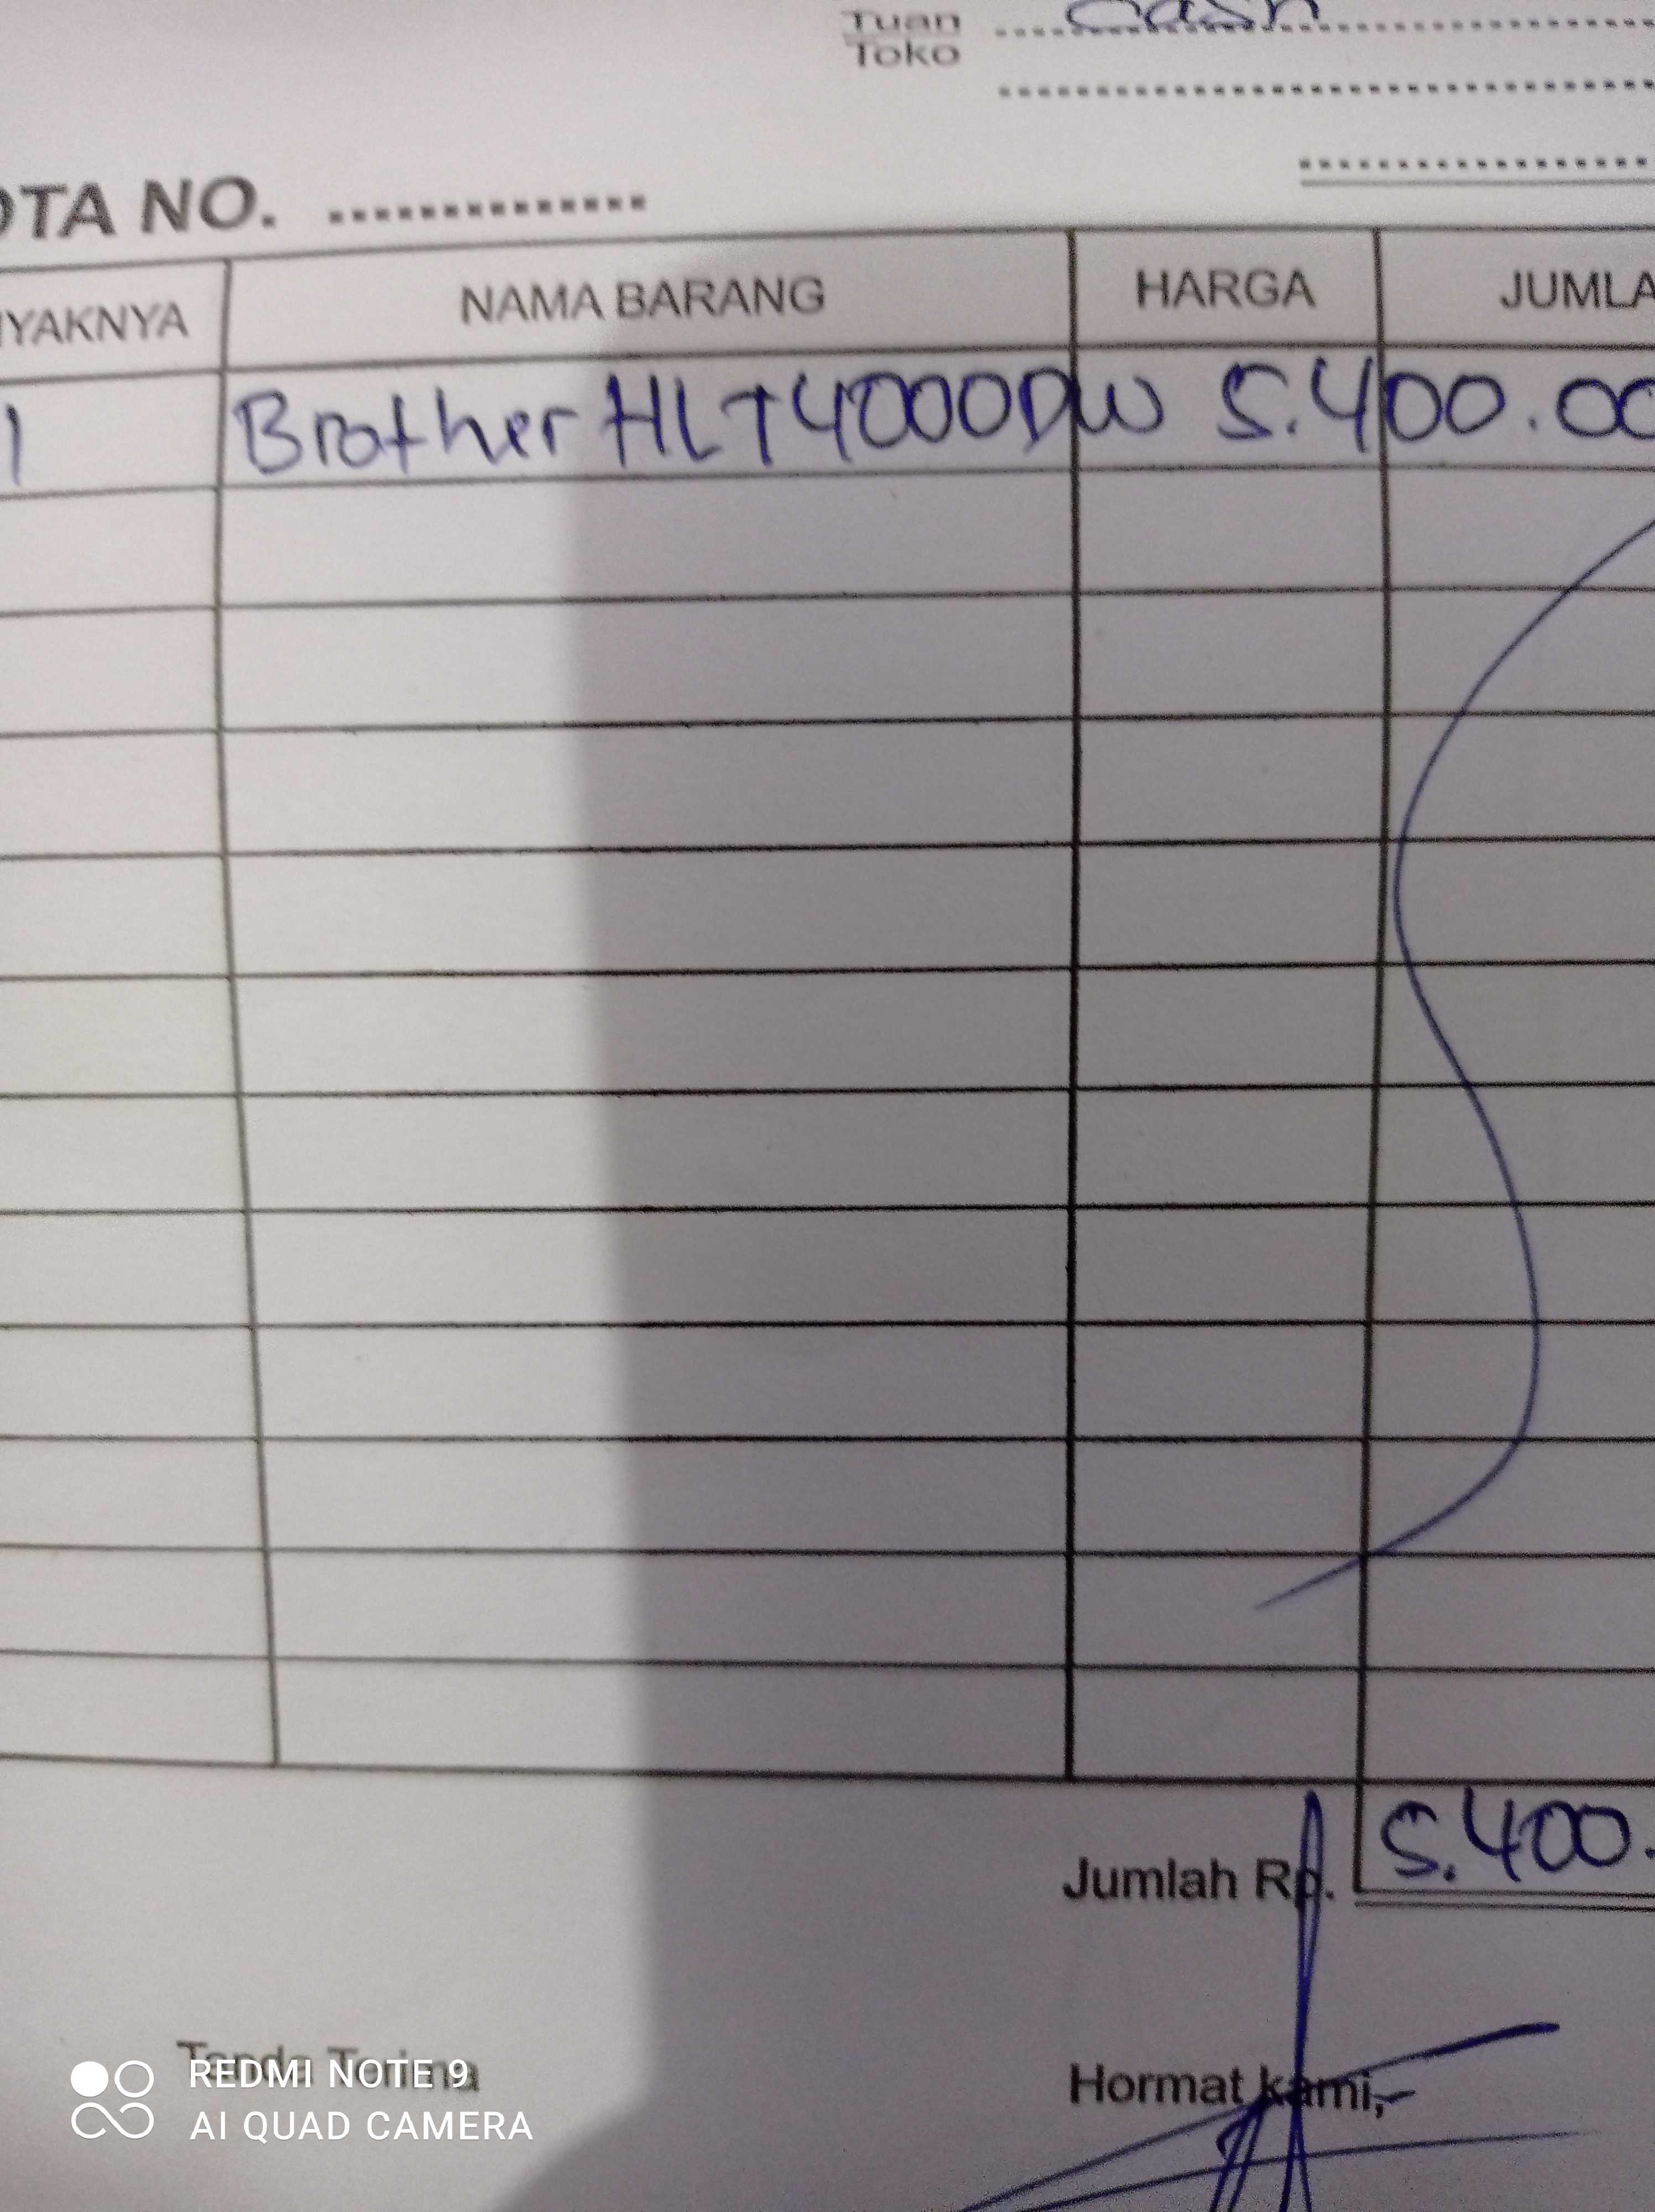 Tuan
Toko
Cash
OTA NO.
NYAKNYA NAMA BARANG HARGA JUMLA
1 Brother HLT4000DW 5.400.00
Jumlah Rp. 5.400.
Tanda Terima
Hormat kami,
REDMI NOTE 9
AI QUAD CAMERA